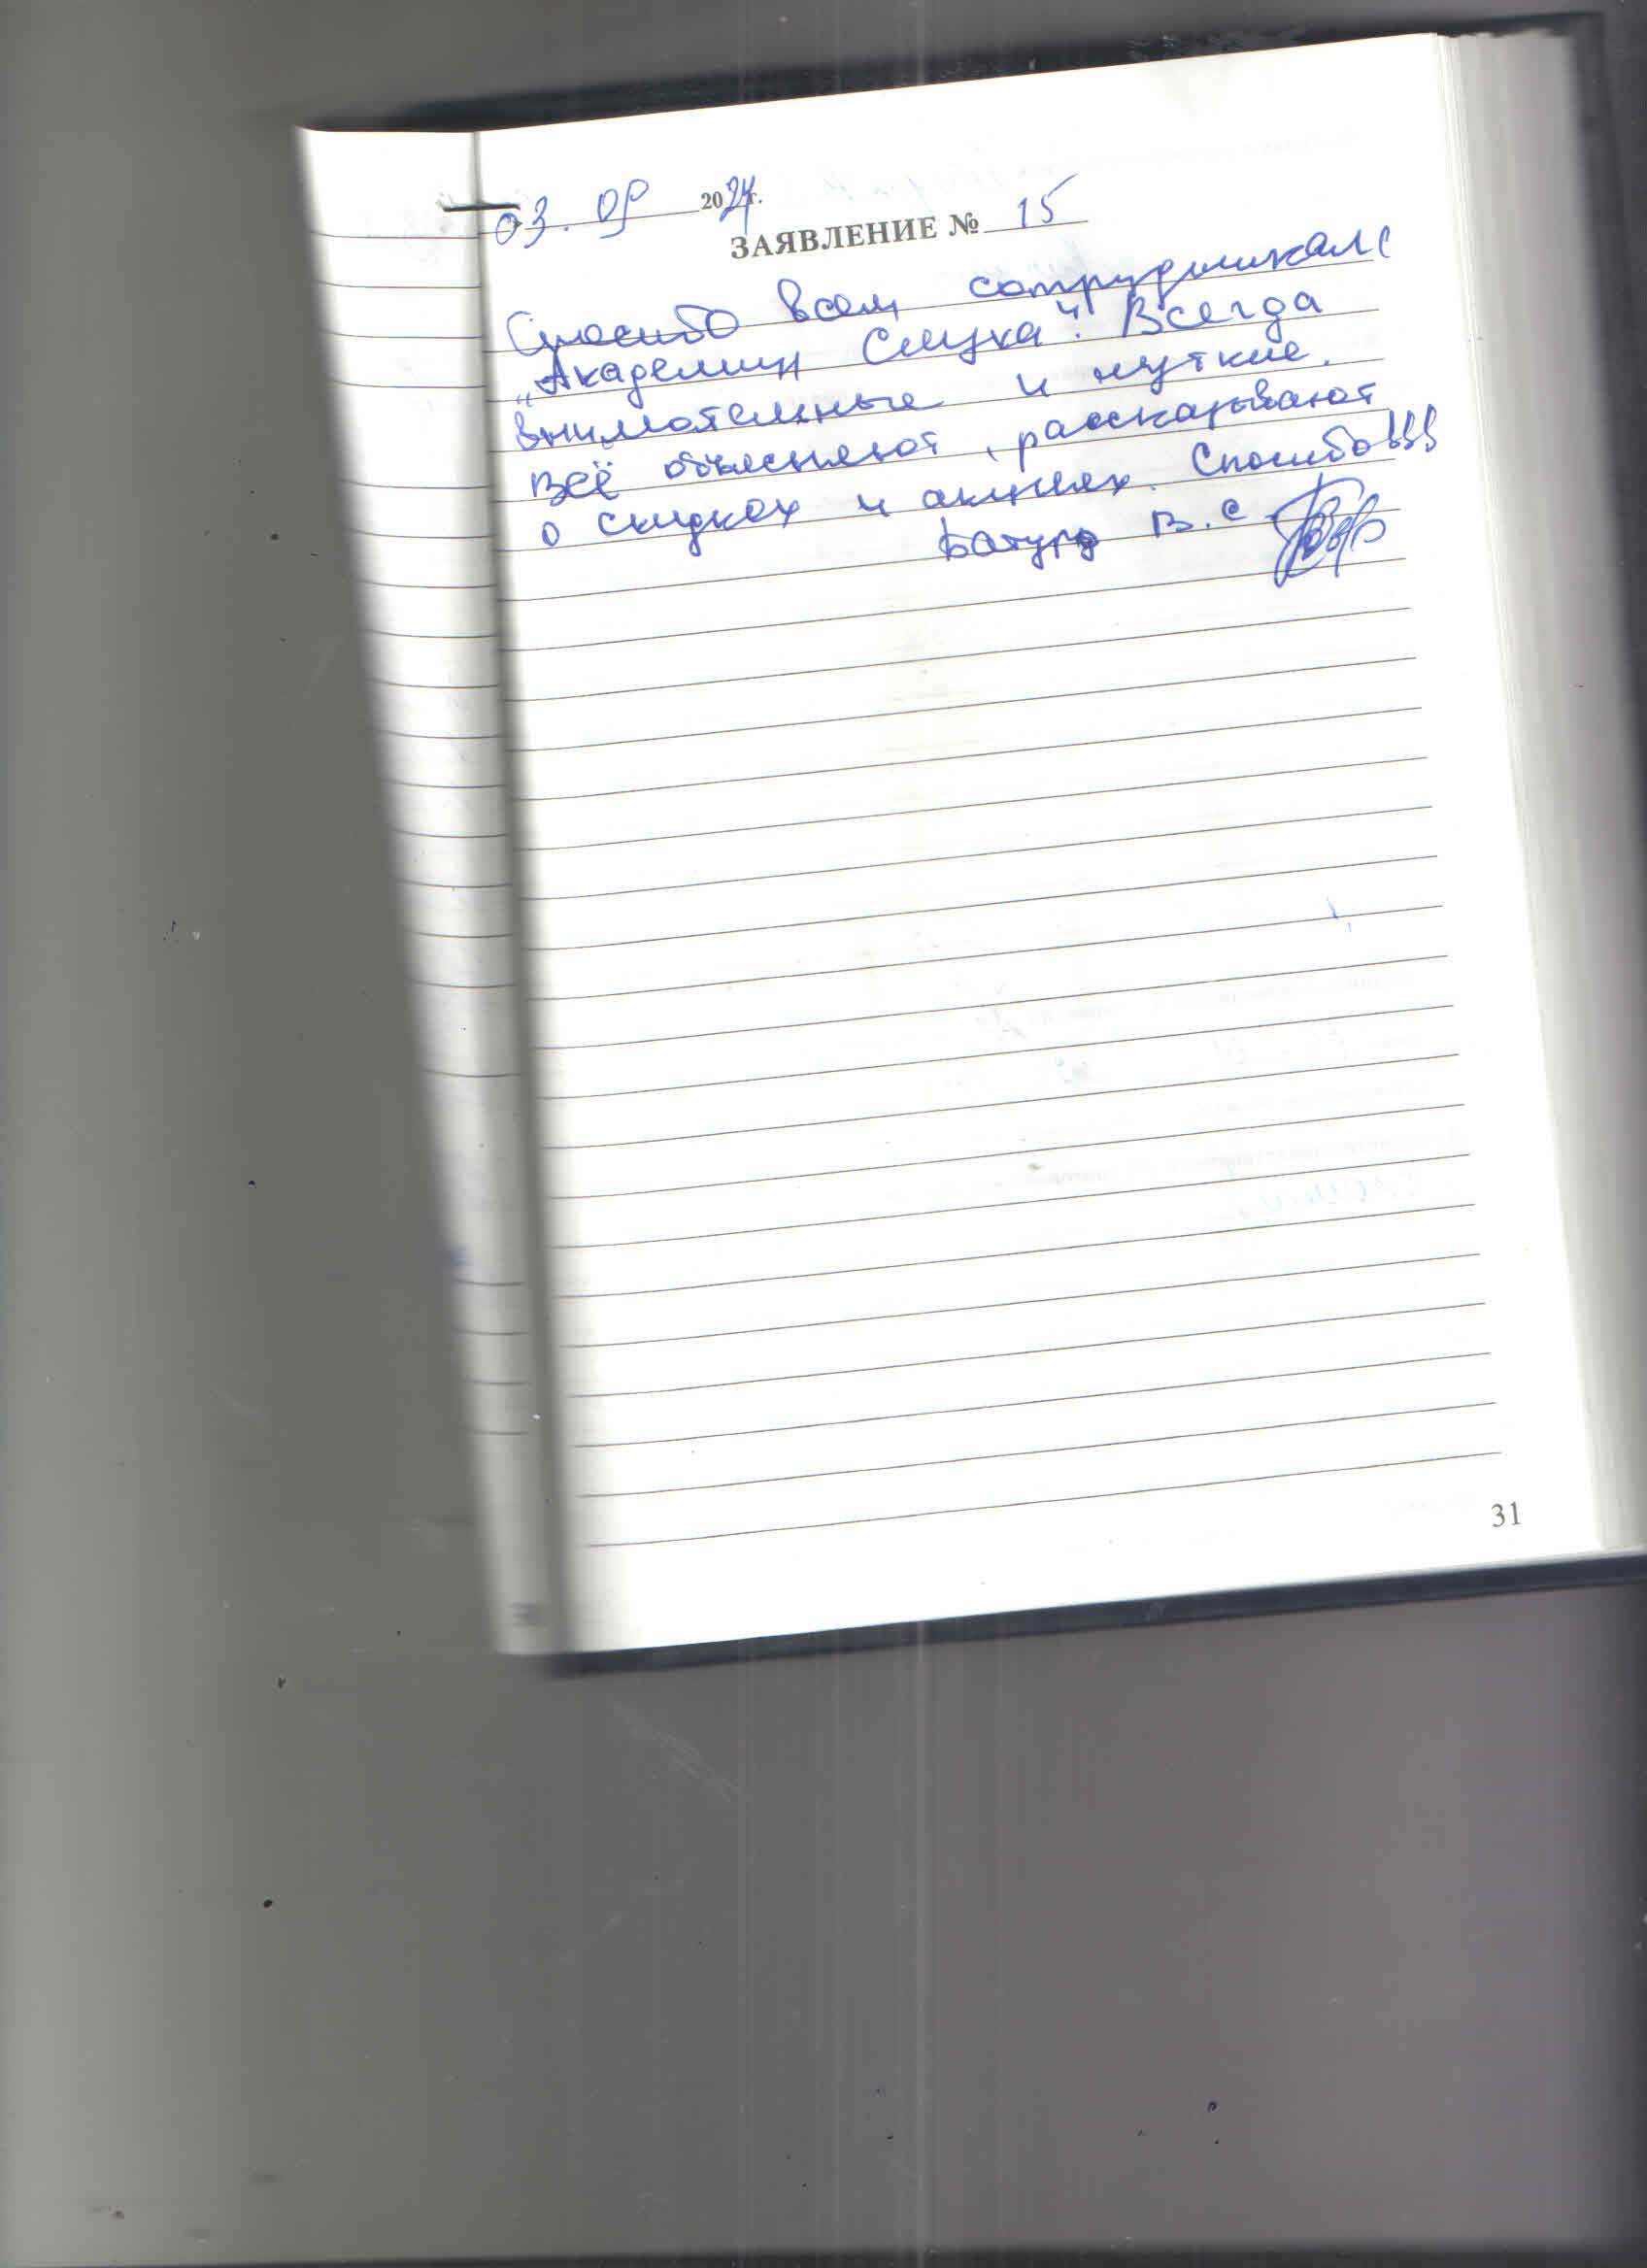 03. 09 2024г.
ЗАЯВЛЕНИЕ № 15
Спасибо всем сотрудникам
„Академии Слуха“. Всегда
внимательные и чуткие.
Всё объясняют, рассказывают
о скидках и акциях. Спасибо!!!
В. С
31